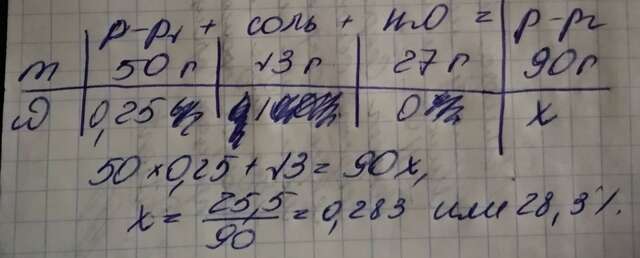 р-р₁ + соль + H₂O = р-р₂
m 50 г 13 г 27 г 90 г
ω 0,25 1 0 x
50 × 0,25 + 13 = 90x,
x = 25,5/90 = 0,283 или 28,3%.